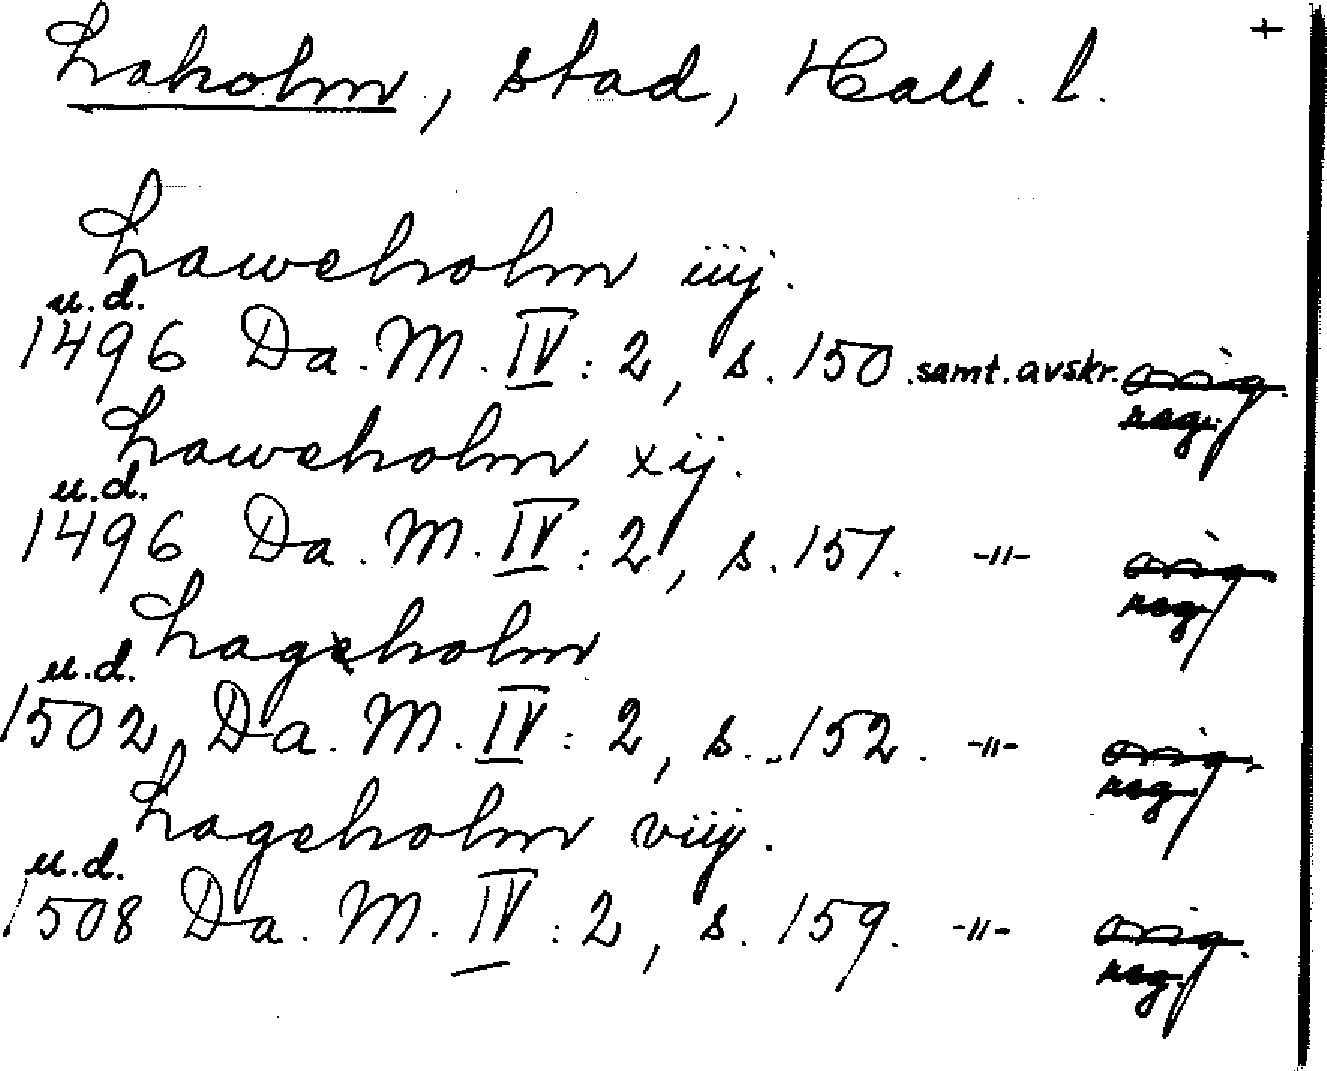 Laholm, stad, Hall. l. +
Laweholm iiij.
u.d.
1496 Da. M. IV : 2, s. 150. samt. avskr. orig.
reg.
Laweholm xij.
u.d.
1496 Da. M. IV : 2, s. 151. -"- orig.
reg.
Lageholm
u.d.
1502 Da. M. IV : 2, s. 152. -"- orig.
reg.
Lageholm viiij.
u.d.
1508 Da. M. IV : 2, s. 159. -"- orig.
reg.